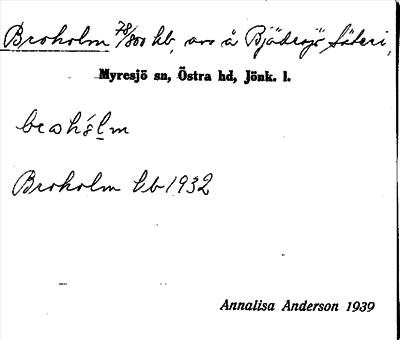 Broholm 78/800 hb, avs å Bjädesjö Säteri,
Myresjö sn, Östra hd, Jönk. l.
brohólm
Broholm Eb 1932
Annalisa Anderson 1939